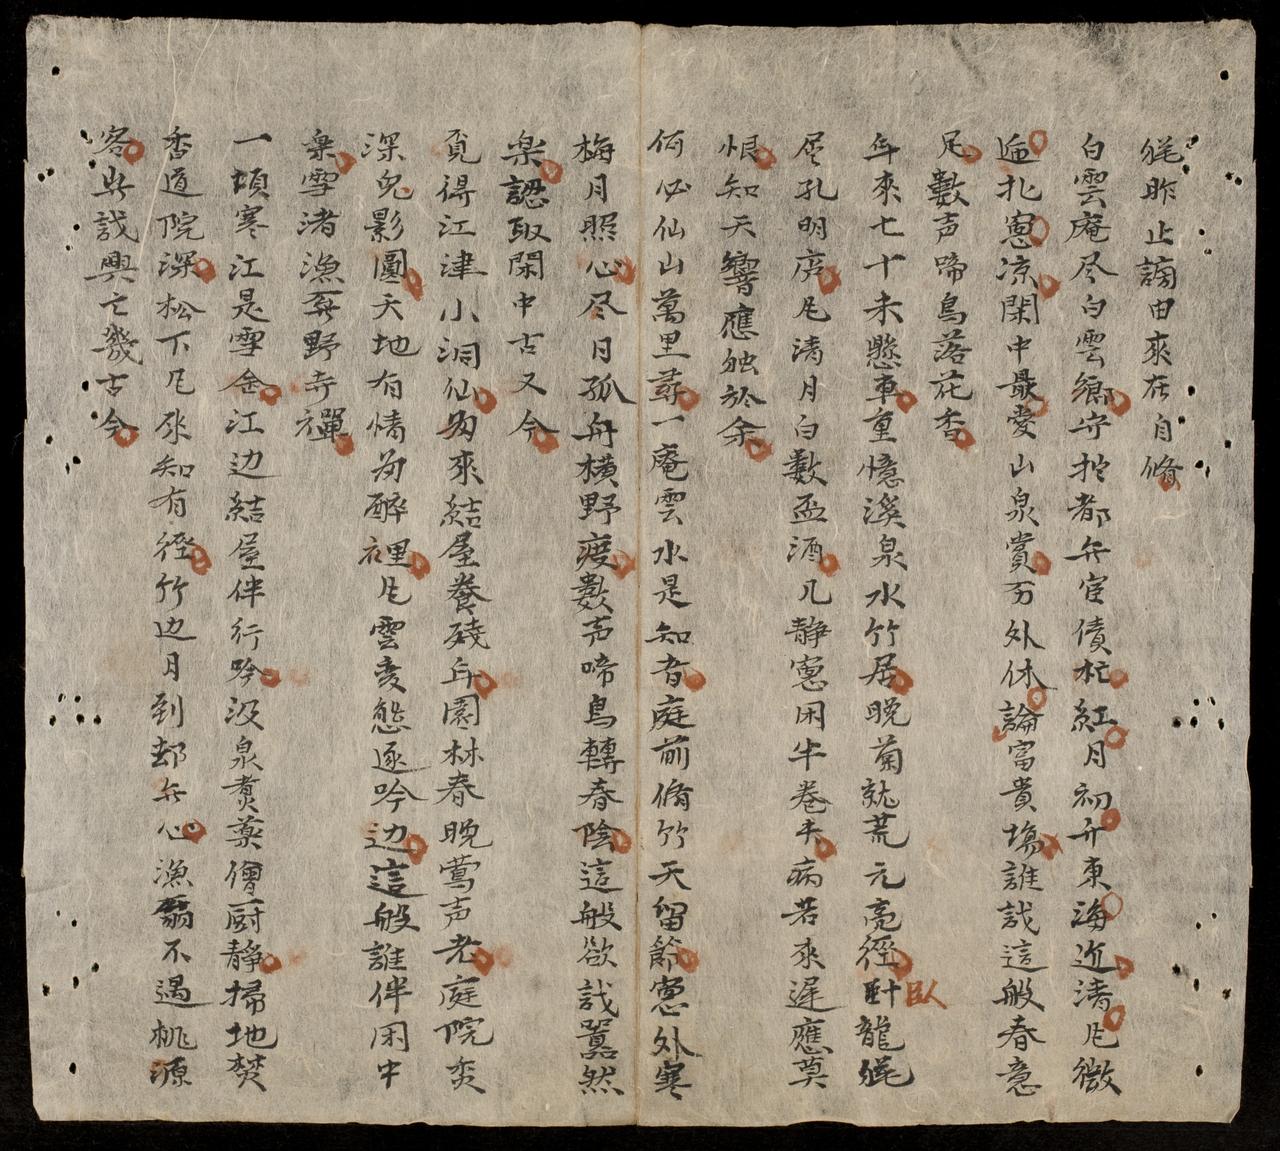 能昨止謗由來在自脩
白雲庵尽白雲鄉守拙都無宦債忙紅月初升東海近清風微
逼北窓凉閑中最愛山泉賞方外休論富貴塲誰識這般春意
足數声啼鳥落花香
年來七十未懸車重憶溪泉水竹居晚菊就荒元亮徑卧臥龍能
尽孔明庐風清月白數盃酒几静窓閑半卷夫病若來遲應莫
恨知天響應独於余
何必仙山萬里尋一庵雲水是知音庭前脩竹天留節窓外寒
梅月照心尽日孤舟横野渡數声啼鳥轉春陰這般欲識囂然
楽認取閑中古又今
覓得江津小洞仙匆來結屋養殘年園林春晚鶯声老庭院
深鬼影圓天地有情為醉裡風雲変態逐吟边這般誰伴閑中
楽雪渚漁舟野寺禪
一頃寒江是雪金江边結屋伴行吟汲泉煮藥僧厨静掃地焚
香道院深松下風來知有徑竹边月到却無心漁翁不遇桃源
客此識興亡幾古今